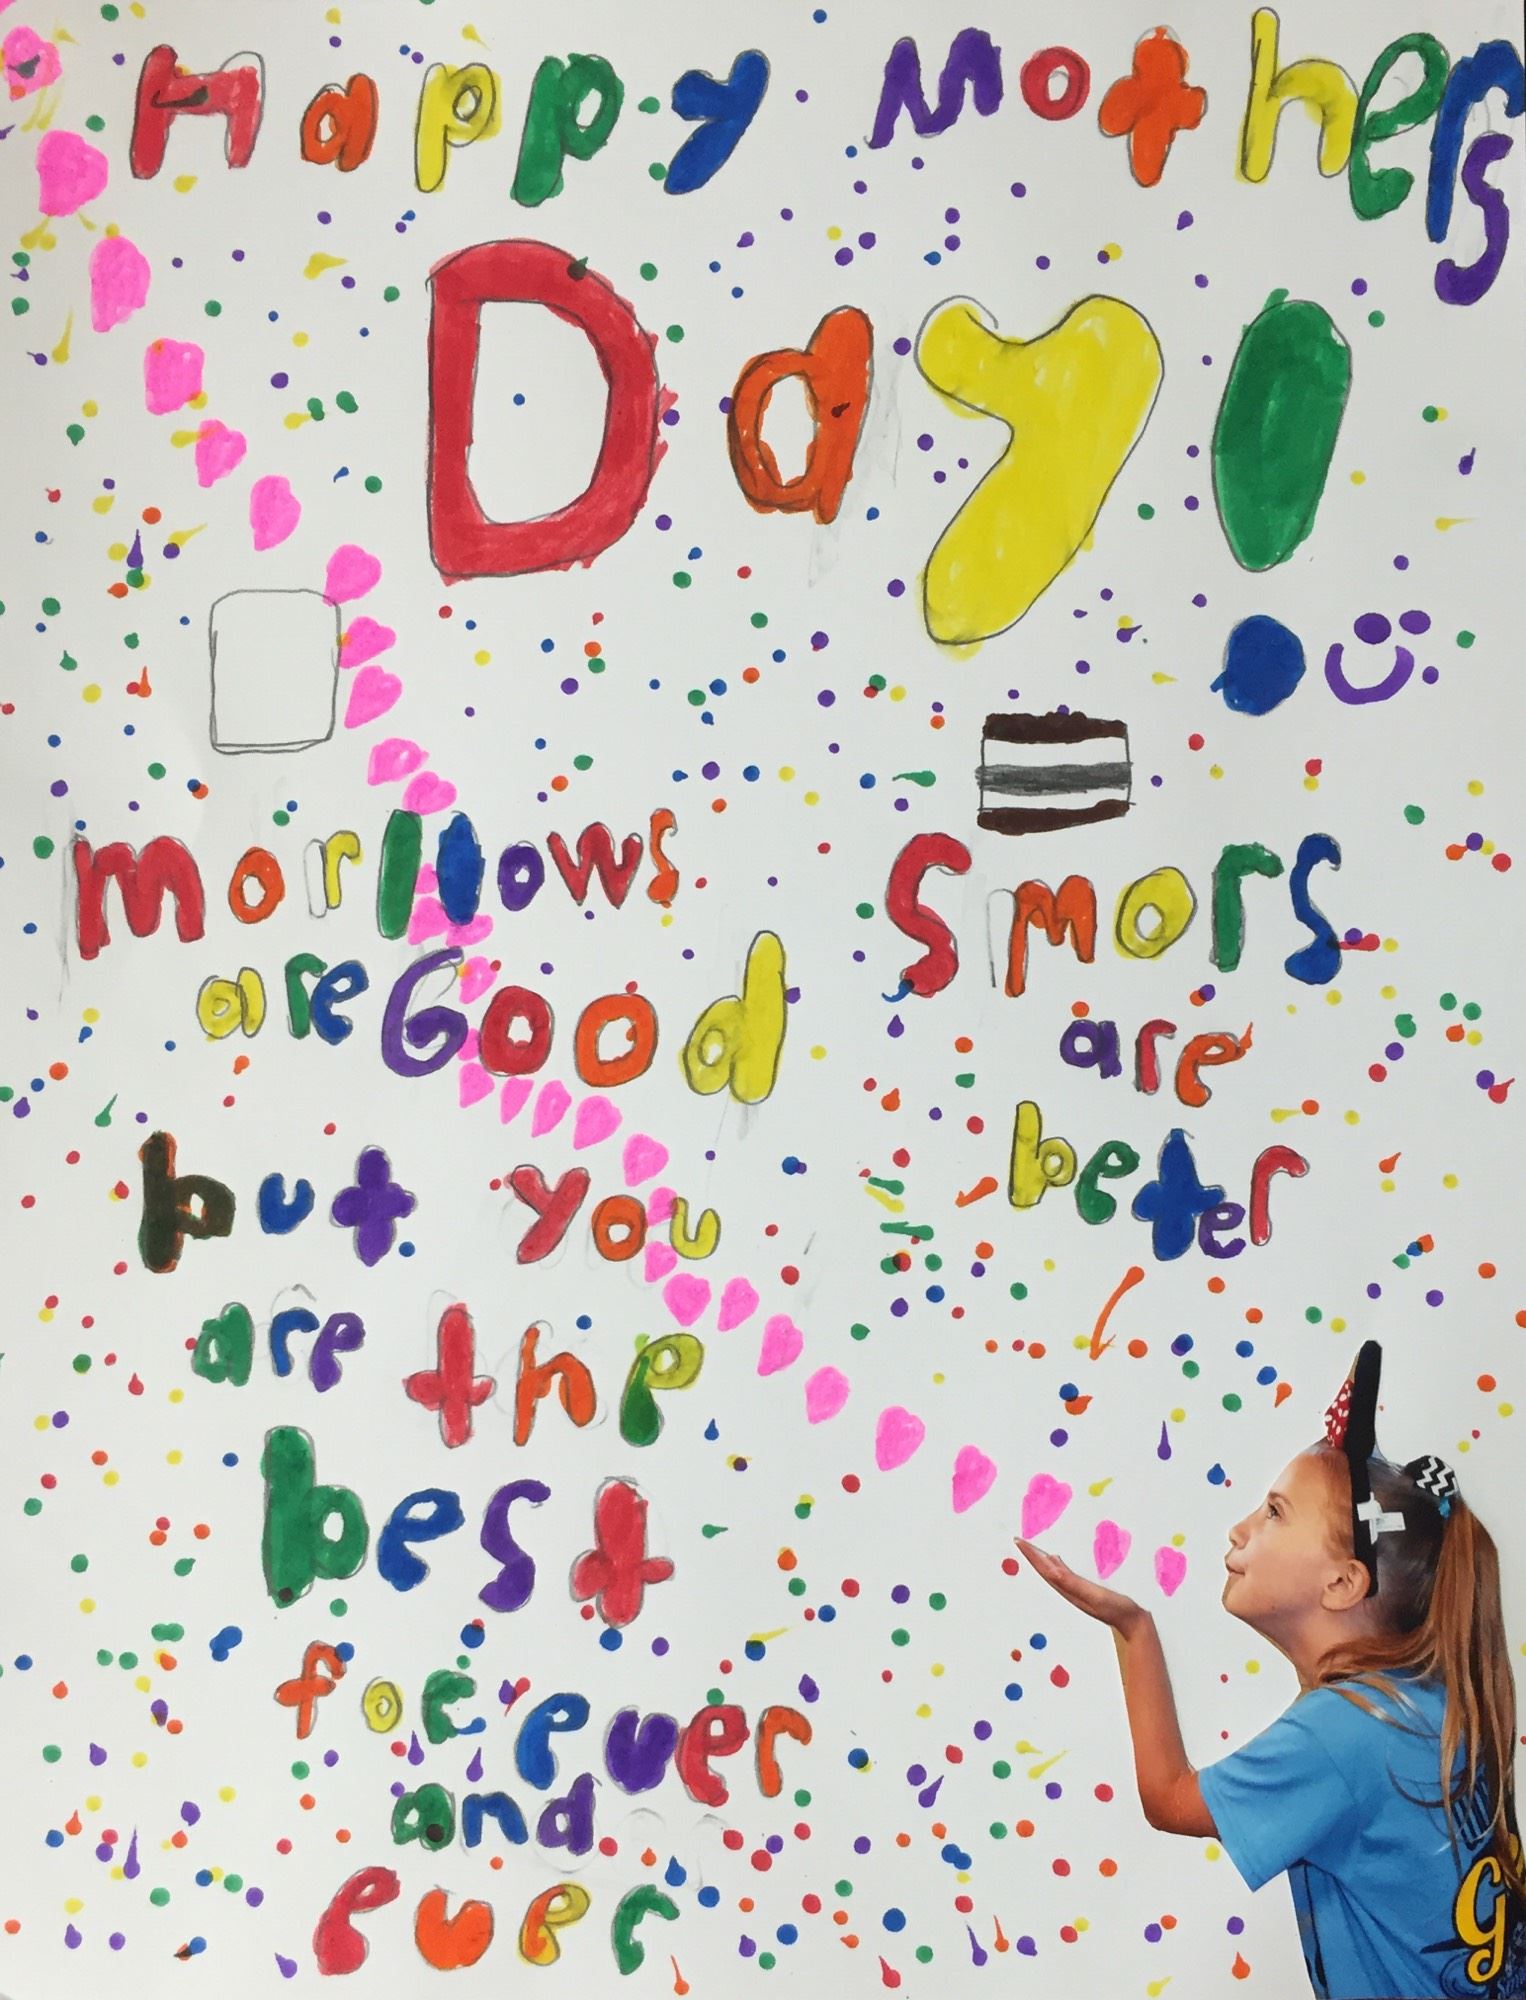 Happy Mothers
Day!
morllows
are Good
but you
are the
best
forever
and
ever
Smors
are
beter
G